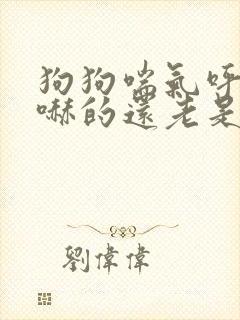 狗狗喘氣呼
嚇的還老是
劉偉偉